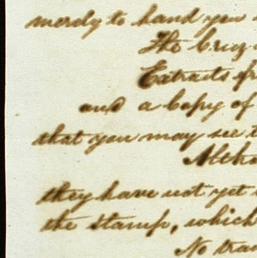 merely to hand you
The brig
Extracts fr
and a Copy of
that you may see t
Altho
they have not yet
the stamp, which
No tran